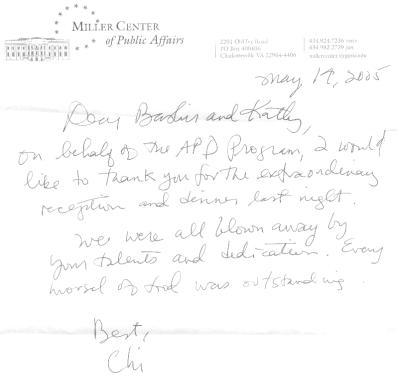 MILLER CENTER
of Public Affairs
2201 Old Ivy Road
PO Box 400406
Charlottesville VA 22904-4406
434.924.7236 voice
434.982.2739 fax
millercenter.virginia.edu
May 19, 2005
Dear and Kathy,
On behalf of the APD Program, I would
like to thank you for the extraordinary
reception and dinner last night.
We were all blown away by
your talents and dedication. Every
morsel of food was outstanding.
Best,
Chi